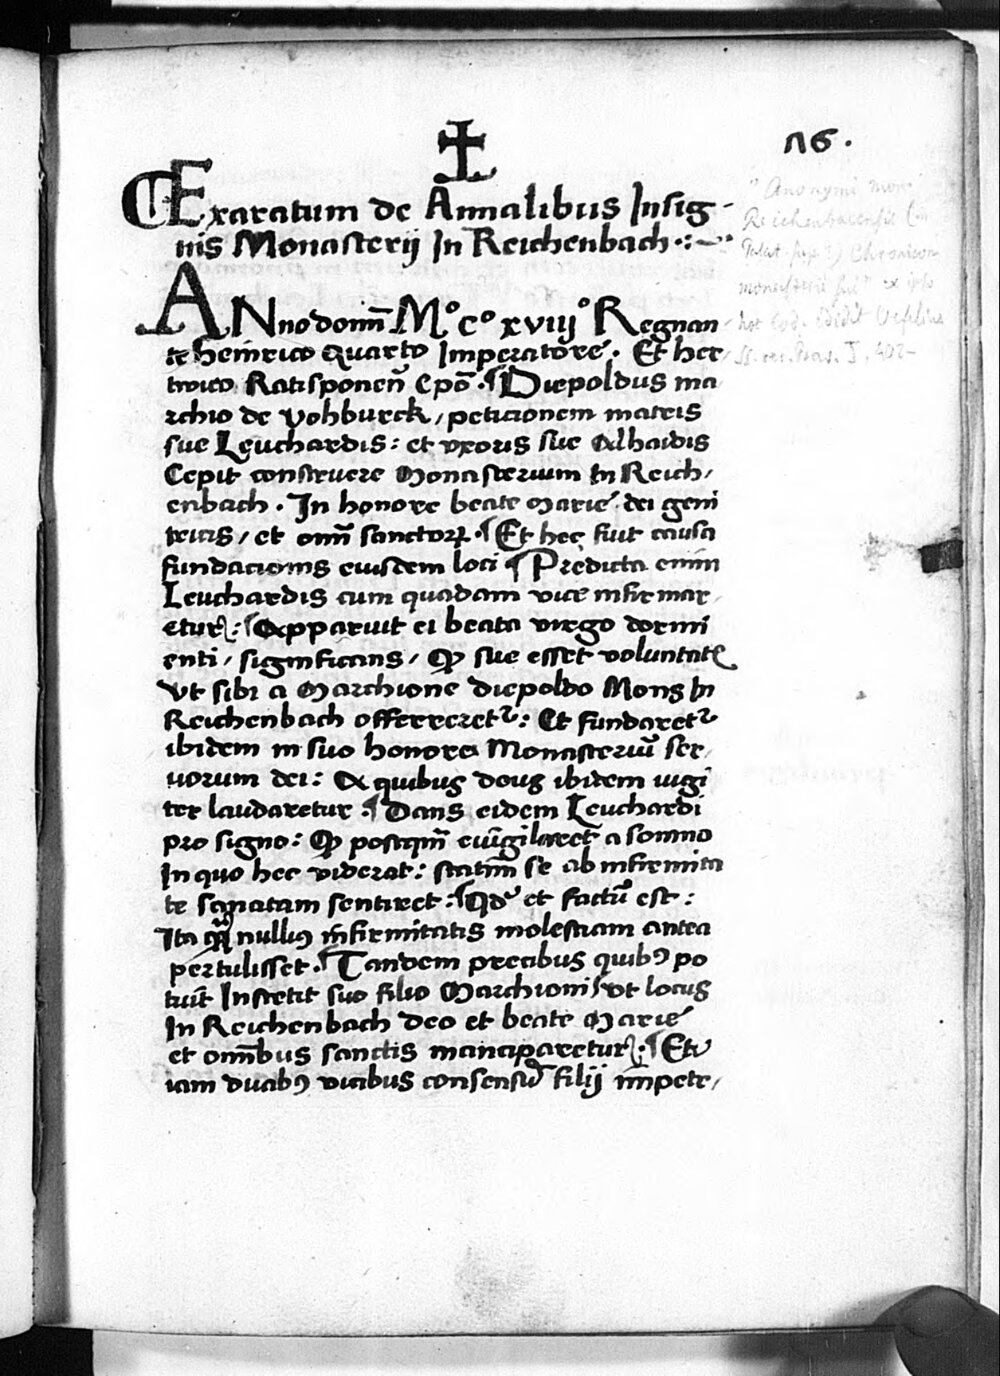 116.
Exaratum de Annalibus Insig-
nis Monasterij In Reichenbach
ANno domī Mº Cº xviijº Regnan
te heinrico quarto Imperatore. Et her
twico Ratisponeñ Epō. Diepoldus ma
rchio de Vohburck, peticionem matris
sue Leuchardis: et vxoris sue Alhaidis
Cepit construere Monasterium In Reich,
enbach. In honore beate Marie dei geni
tricis, et omī sanctorꝝ. Et hec fuit causa
fundacionis eiusdem loci Predicta enim
Leuchardis cum quadam vice infirmar
etur: Apparuit ei beata virgo dormi
enti, significans, ꝙ sue esset voluntatꝭ
Vt sibi a Marchione diepoldo Mons In
Reichenbach offerretᷣ: Et fundaretᷣ
ibidem in suo honore Monasteriū ser,
uorum dei: A quibus deus ibidem iugi
ter laudaretur. Dans eidem Leuchardi
pro signo: ꝙ postqm̄ euigilaret a somno
In quo hec viderat: statim se ab infirmita
te sanatam sentiret: Qd' et factū est:
Ita nulliꝰ infirmitatis molestiam antea
pertulisset. Tandem precibus quibꝰ po
tuit Instetit suo filio Marchioni vt locus
In Reichenbach deo et beate Marie
et omībus sanctis manciparetur. Et
iam duabꝰ vicibus consensū filij impetr,
Anonymi mon.
Reichenbacensis
Chronicon
monasterii sui ex ipso
hoc Cod. edidit Oefelius
SS. rer. Boic. I, 402-